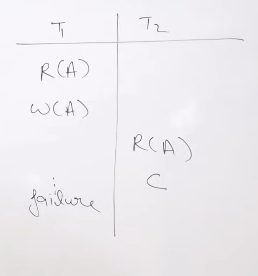 T1 T2
R(A)
W(A)
R(A)
C
failure